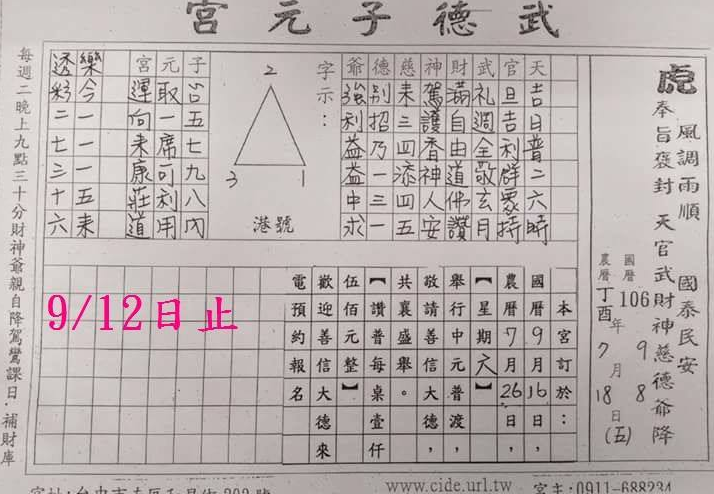 武德子元宮
虎
風調雨順 國泰民安
奉旨褒封 天官武財神慈德爺降
國曆 106 年 9 月 8 日 (五)
農曆 丁酉 7 18
天官武財神慈德爺
字示：
吉旦礼滿駕来別強
日吉週自護三招利
普利全由香四乃益
二群敬道神添一益
六眾玄佛人四三中
時持月讚安五一求
2
3 1
港號
子元宮
白取運
五一向
七席来
九可康
八利莊
戊用道
樂透
今彩
一二
一七
一三
五十
来六
本宮訂於：
國曆9月16日，
農曆7月26日，
【星期六】
舉行中元普渡，
敬請善信大德，
共襄盛舉。
【讚普每桌壹仟
伍佰元整】
歡迎善信大德來
電預約報名
9/12日止
每週二晚上九點三十分財神爺親自降駕鸞課日．補財庫
www.cide.url.tw
宮主:0911-688234